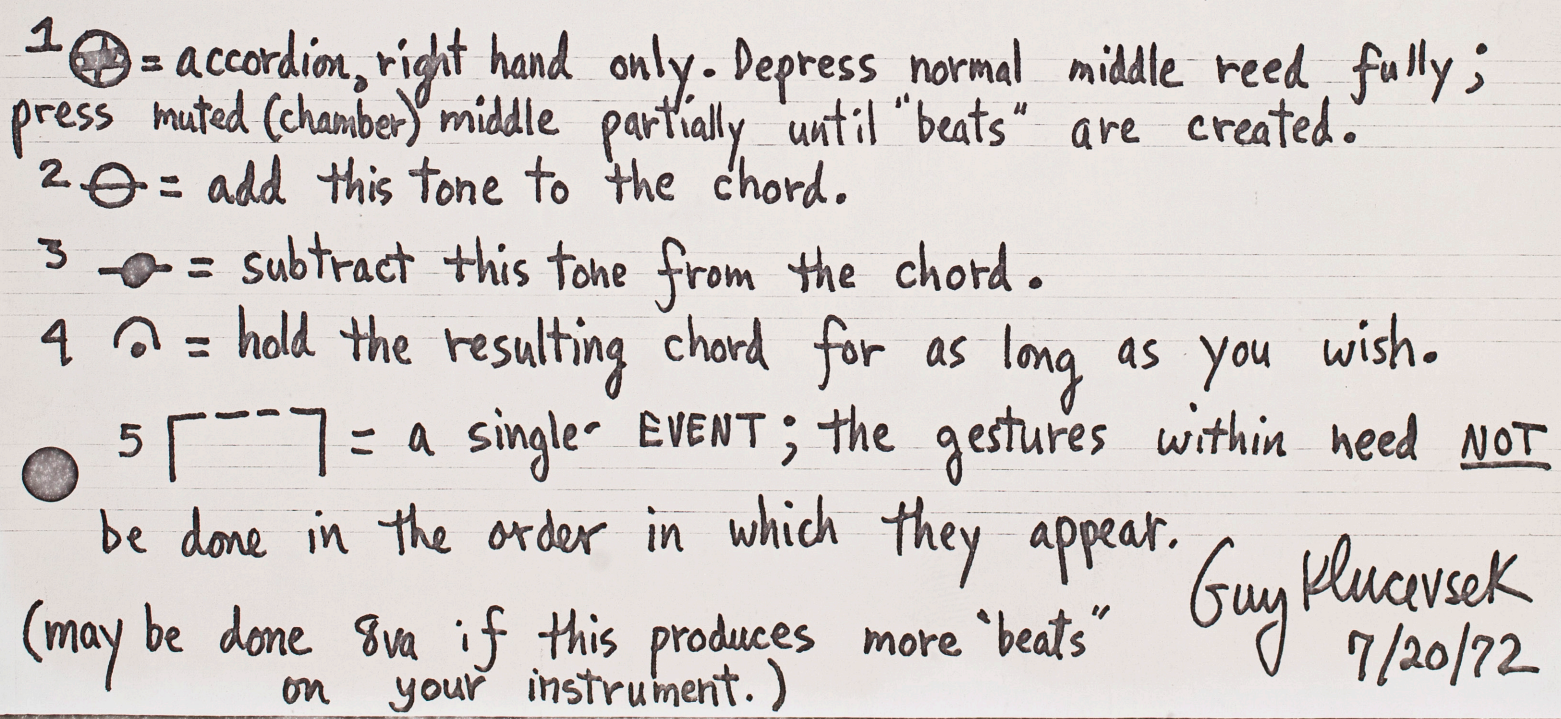 1 = accordion, right hand only. Depress normal middle reed fully;
press muted (chamber) middle partially until "beats" are created.
2 = add this tone to the chord.
3 = subtract this tone from the chord.
4 = hold the resulting chord for as long as you wish.
5 = a single EVENT; the gestures within need NOT
be done in the order in which they appear.
(may be done 8va if this produces more "beats"
on your instrument.)
Guy Klucevsek
7/20/72